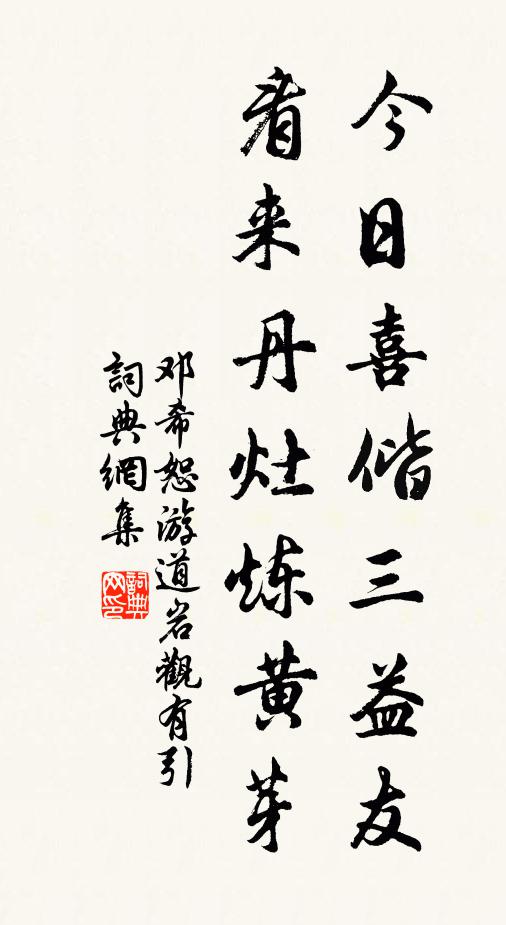 今日喜偕三益友
看来丹灶炼黄芽
邓希恕游道岩觀有引
詞典網集
詞典网印